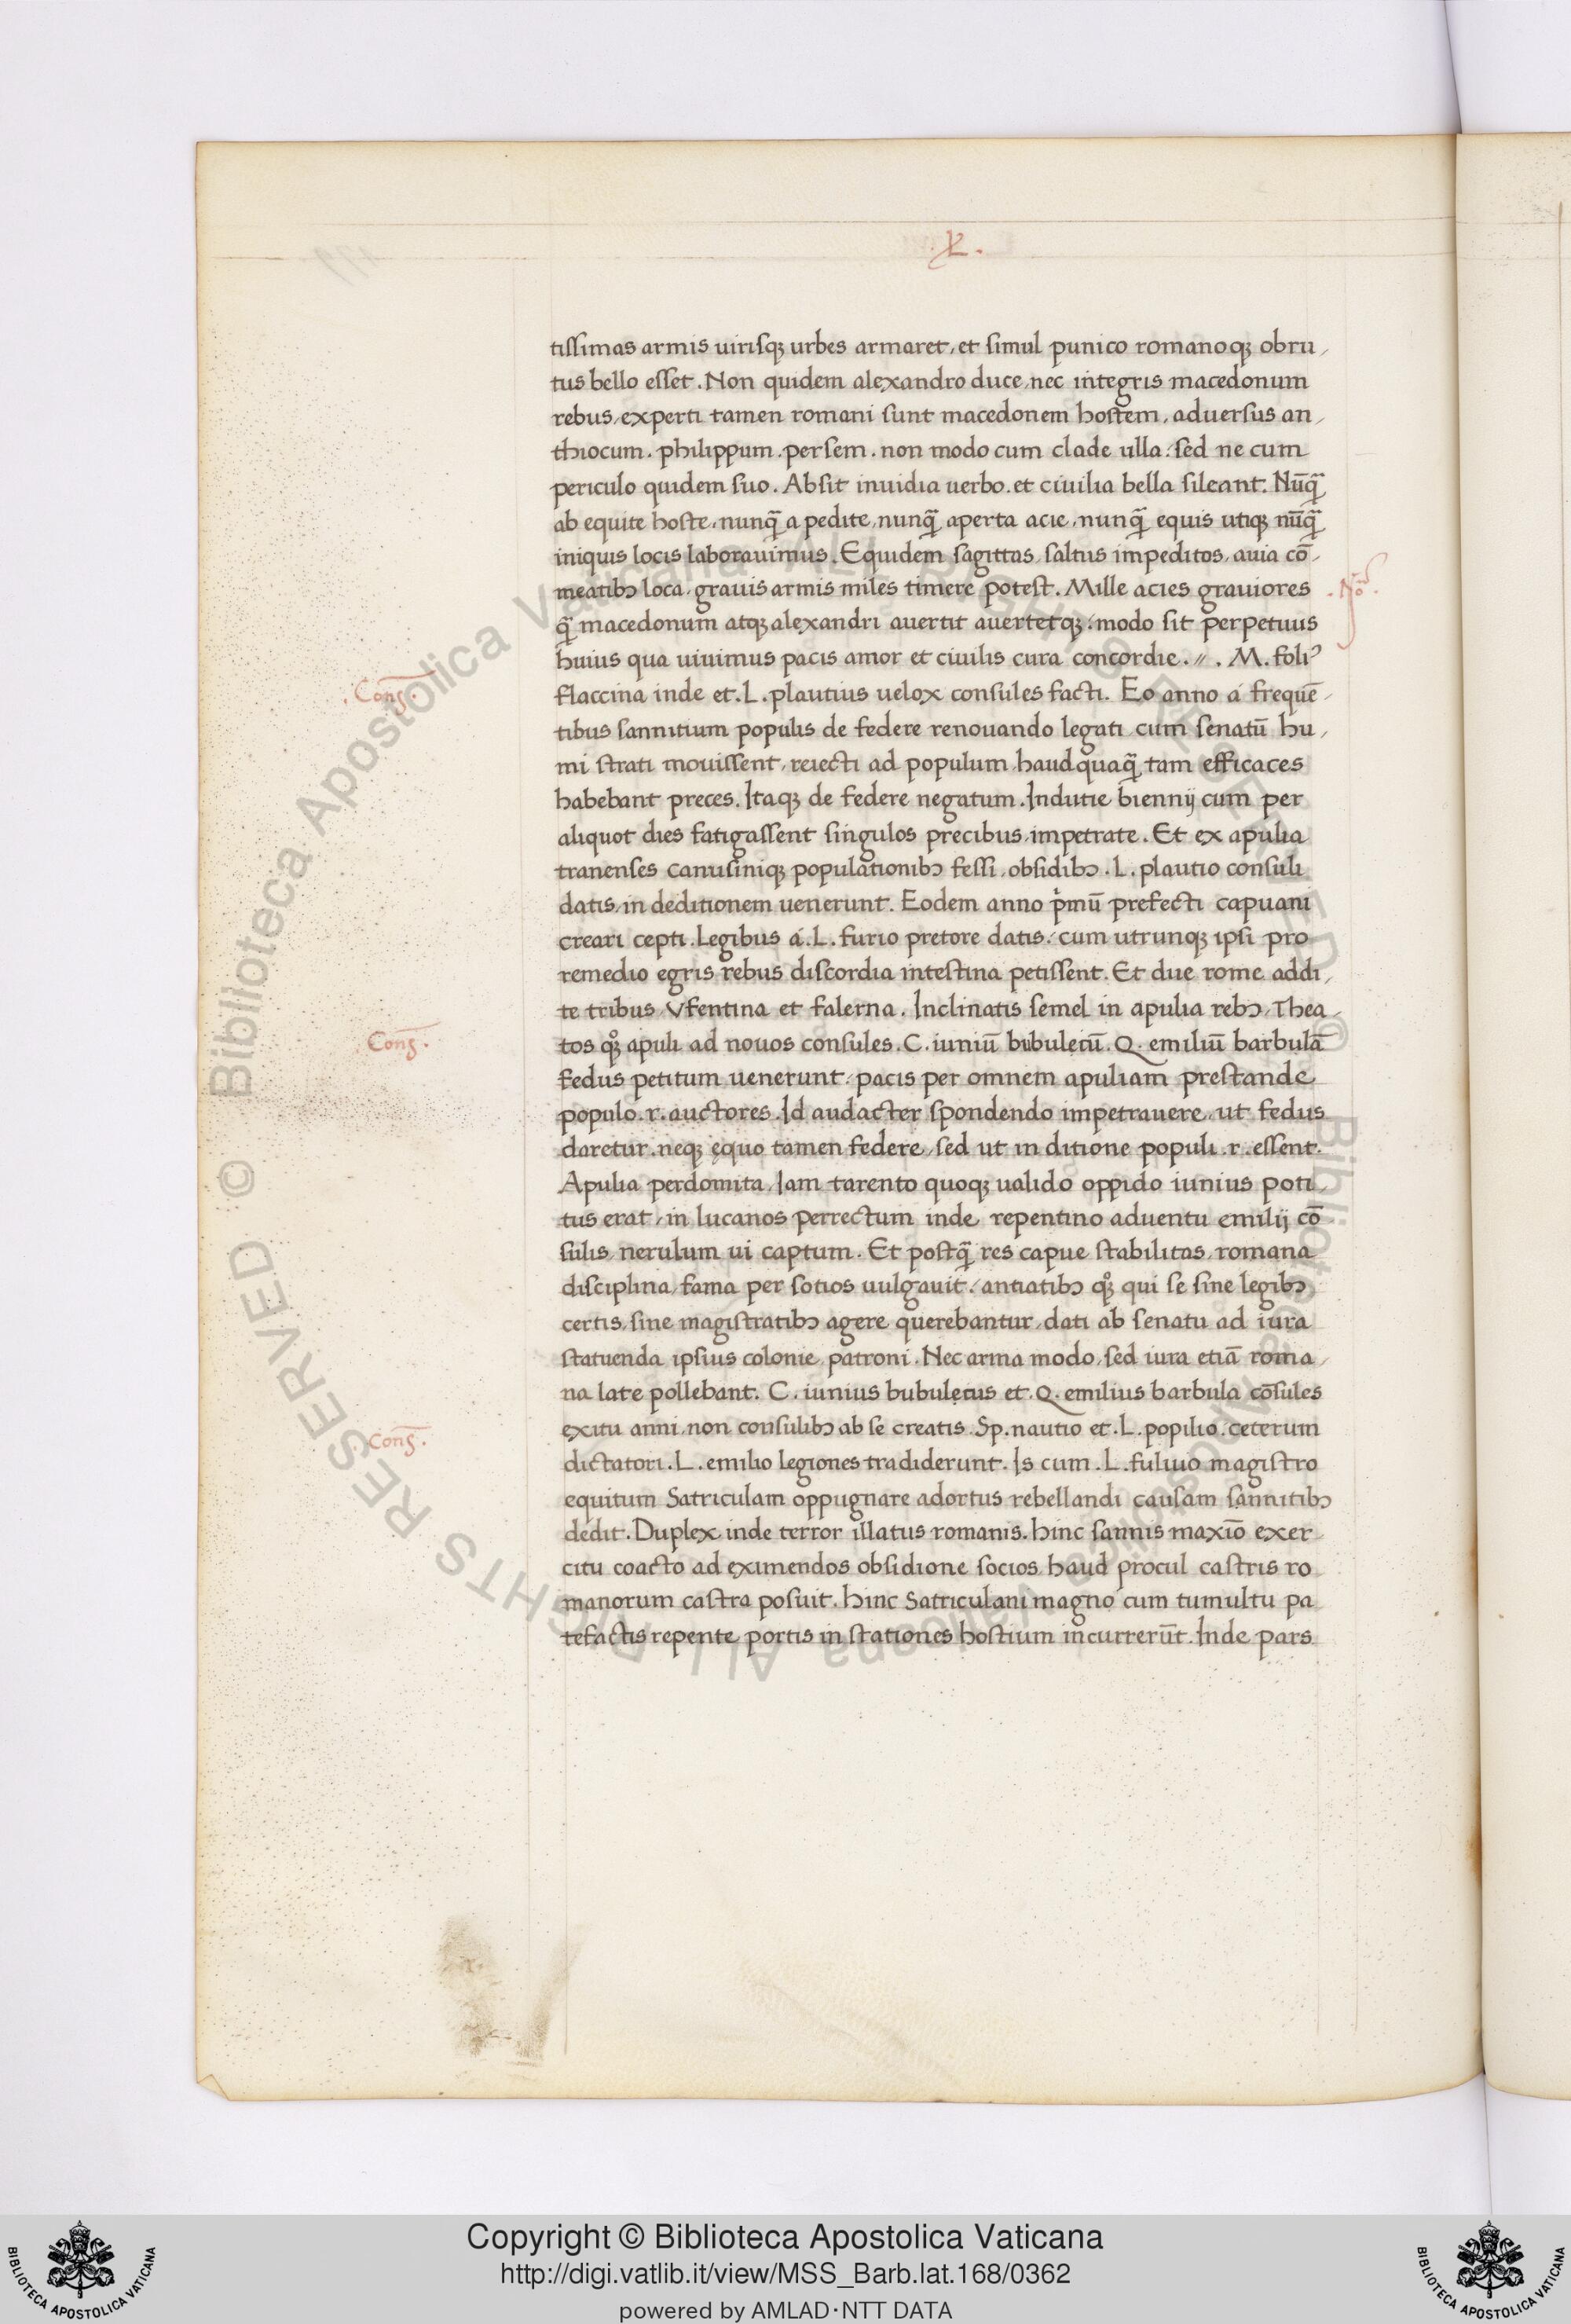 .X.
tissimas armis uirisqꝫ urbes armaret, et simul punico romanoqꝫ obru,
tus bello esset. Non quidem alexandro duce, nec integris macedonum
rebus, experti tamen romani sunt macedonem hostem, aduersus an,
thiocum. philippum. persem. non modo cum clade ulla: sed ne cum
periculo quidem suo. Absit inuidia uerbo. et ciuilia bella sileant. Nūq̄
ab equite hoste, nunq̄ a pedite, nunq̄ aperta acie, nunq̄ equis utiqꝫ nūq̄
iniquis locis laborauimus. Equidem sagittas, saltus impeditos, auia cō,
meatibꝫ loca, grauis armis miles timere potest. Mille acies grauiores
.No.
q̄ macedonum atqꝫ alexandri auertit auertetqꝫ: modo sit perpetuus
huius qua uiuimus pacis amor et ciuilis cura concordie. //. M. foliꝰ
.Cons̄.
flaccina inde et. L. plautius uelox consules facti. Eo anno á frequē,
tibus sannitium populis de federe renouando legati cum senatū hu,
mi strati mouissent, reiecti ad populum haudquaq̄ tam efficaces
habebant preces. Itaqꝫ de federe negatum. Indutie biennij cum per
aliquot dies fatigassent singulos precibus impetrate. Et ex apulia
tranenses canusiniqꝫ populationibꝫ fessi, obsidibꝫ. L. plautio consuli
datis, in deditionem uenerunt. Eodem anno p̓mū prefecti capuani
creari cepti. Legibus á. L. furio pretore datis: cum utrunqꝫ ipsi pro
remedio egris rebus discordia intestina petissent. Et due rome addi,
te tribus Vfentina et falerna. Inclinatis semel in apulia rebꝫ, Thea,
Cons̄.
tos qͦꝫ apuli ad nouos consules. C. iuniū bubulecū. Q. emiliū barbulā
fedus petitum uenerunt: pacis per omnem apuliam prestande
populo. r. auctores. Id audacter spondendo impetrauere, ut fedus
daretur. neqꝫ ęquo tamen federe, sed ut in ditione populi. r. essent.
Apulia perdomita, Iam tarento quoqꝫ ualido oppido iunius poti,
tus erat, in lucanos perrectum inde, repentino aduentu emilij cō
sulis, nerulum ui captum. Et postq̄ res capue stabilitas, romana
disciplina, fama per sotios uulgauit: antiatibꝫ qͦꝫ qui se sine legibꝫ
certis, sine magistratibꝫ agere querebantur, dati ab senatu ad iura
statuenda ipsius colonie patroni. Nec arma modo, sed iura etiā roma,
na late pollebant. C. iunius bubulęcus et. Q. emilius barbula cōsules
Cons̄.
exitu anni, non consulibꝫ ab se creatis. Sp. nautio et. L. popilio: ceterum
dictatori. L. emilio legiones tradiderunt. Is cum. L. fuluio magistro
equitum Satriculam oppugnare adortus rebellandi causam sannitibꝫ
dedit. Duplex inde terror illatus romanis. hinc sannis maxīo exer
citu coacto ad eximendos obsidione socios haud procul castris ro
manorum castra posuit. hinc Satriculani magno cum tumultu pa
tefactis repente portis in stationes hostium incurrerūt. Inde pars
© Biblioteca Apostolica Vaticana ALL RIGHTS RESERVED © Biblioteca Apostolica Vaticana ALL RIGHTS RESERVED
BIBLIOTECA APOSTOLICA VATICANA
Copyright © Biblioteca Apostolica Vaticana
http://digi.vatlib.it/view/MSS_Barb.lat.168/0362
powered by AMLAD·NTT DATA
BIBLIOTECA APOSTOLICA VATICANA